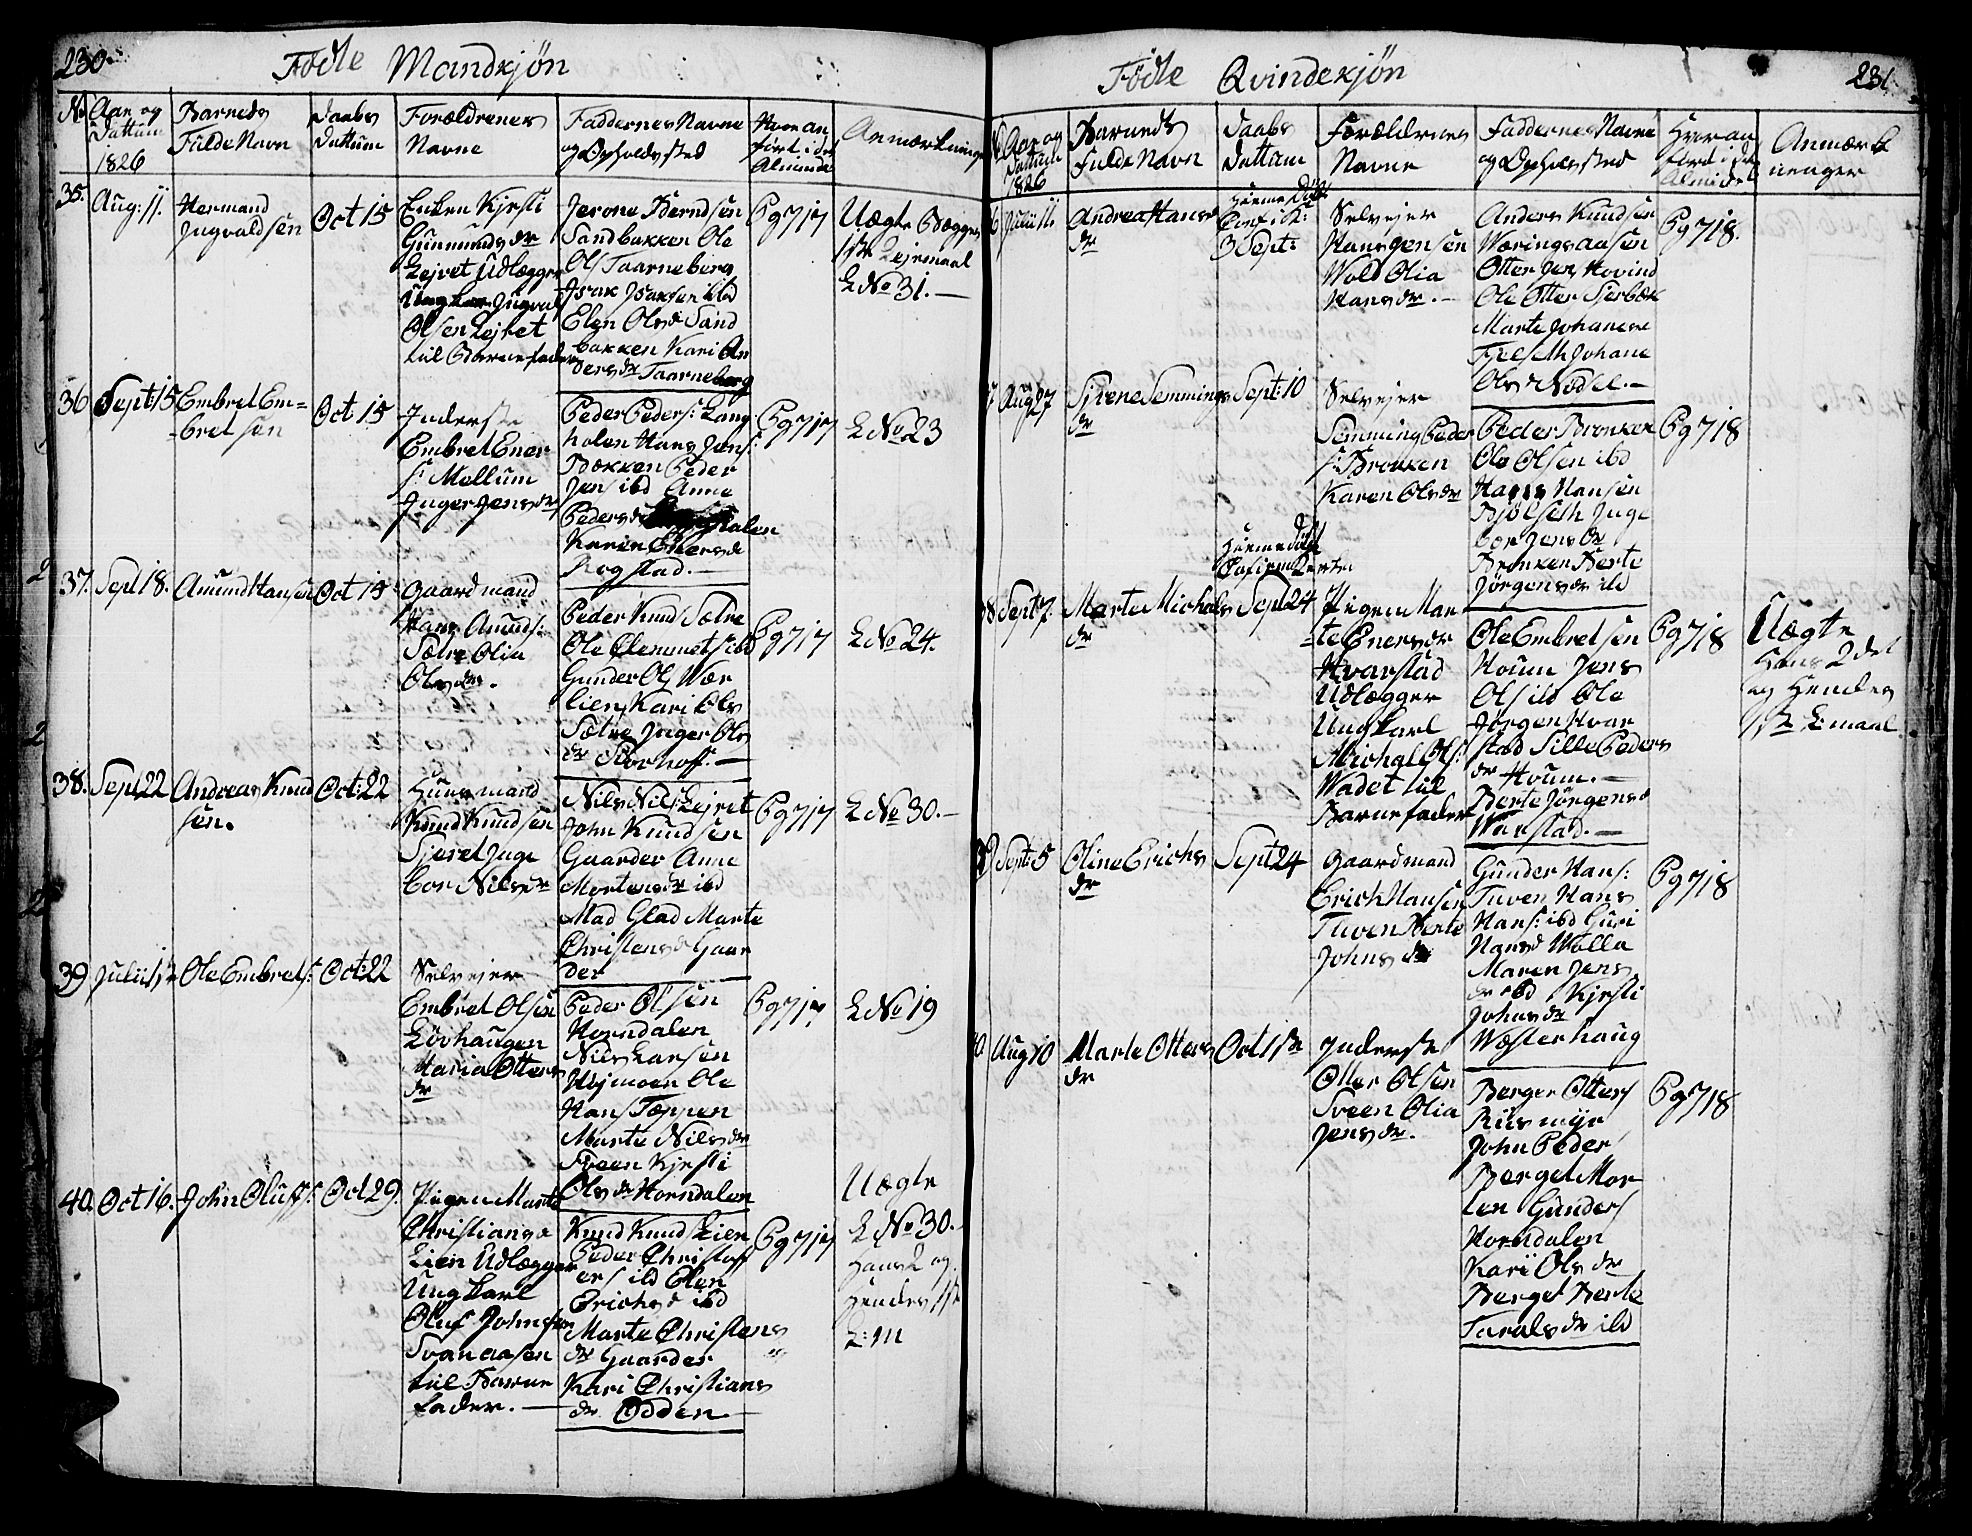 230.
Födte Mandkjøn
No
Aar og
Dattum
1826
Barnets
Fulde Navn
Daabs
Dattum
Forældrenes
Navne
Faddernes Navne
og Opholdssted
Hvor an
ført i det
Anmærkninge
35.
Aug: 11.
Hermand
Ingvaldsen
Oct 15
Enken Kjersti
Gunmundsdr
Lejret Udlægger
Ungkar Ingval
Olsen Lejret
til Barnefader
Jerone Berndsen
Sandbakken Ole
Ols Taarneberg
Isak Isaksen ibd
Elen Olsd Sand
bakken Kari An
dersdr Taarneberg
Pg 717
Uægte Begges
1ste Lejemaal
L No 31.
36
Sept: 15
Embret Em=
=bretsen
Oct 15
Inderste
Embret Ener
s: Mellum
Inger Jensdr
Peder Peders: Lang
holen Hans Jens:
Bækken Peder
Jens ibd Anne
Pedersd holen
Karen Enersd
Rogstad.
Pg 717
L No 23
37.
Sept 18.
Amund Hansen
Oct 15
Gaardmand
Hans Amunds:
Sætre Olia
Olsdr.
Peder Knuds Sætre
Ole Clemmets ibd
Gunder Ols Wær
lien Kari Ols
Sætre Inger Ols
dr Storhoff.
Pg 717
L No 24.
38.
Sept 22
Andreas Knud
sen.
Oct: 22
Huusmand
Knud Knudsen
Sjeret Inge
bor Nilsdr
Nils Nils: Lejret
John Knudsen
Gaarder Anne
Mortensdr ibd
Mad Glad Marte
Christensd Gaar
der
Pg 717
L No 30.
39
Julii 12
Ole Embrets:
Oct: 22
Selvejer
Embret Olsen
Lövhaugen
Maria Otters
dr
Peder Olsen
Horndalen
Nils Larsen
Højmoen Ole
Hans Tæppen
Marte Nilsdr
Sveen Kjersti
Olsdr Horndalen
Pg 717
L No 19
40.
Oct 16.
John Olufs:
Oct 29.
Pigen Marte
Christiansd
Lien Udlægger
Ungkarl
Oluf Johnsen
Svanaasen
til Barne
fader.
Knud Knuds Lien
Peder Christoff
ers ibd Elen
Erichsd ibd
Marte Christens
dr Gaarder
Kari Christians
dr Odden
Pg 717
Uægte
L No 30.
Hans 2 og
Hendes 1ste
L: m
231.
Födte Qvindekjøn
Aar og
Dattum
1826
Barnets
Fulde Navn
Daabs
Dattum
Forældrenes
Navne
Faddernes Navne
og Opholssted
Hvor an
ført i det
Anmærk
ninger
6
Julii 11
Andrea Hans
dr
Hieme Döbt
3 Sept:
Selvejer
Hans Jensen
Wold Olia
Hansdr.
Anders Knudsen
Wæringsaasen
Otter Jens Hovind
Ole Otter Sjerbæk
Marte Johanese
Fjelseth Johane
Olsd Nödel.
Pg 718.
7
Aug 27
Sirene Semmings
dr
Sept: 10
Selvejer
Semming Peder
s: Bronken
Karen Olsdr
Peder Bronken
Ole Olsen ibd
Hans Hansen
Bjölseth Inge
bor Jensdr
Bronken Berte
Jörgensdr ibd
Pg 718
38
Sept 7.
Marte Michels
dr
Hieme Döbt
Sept 24
Pigen Mar
=te Enersdr
Hvarstad
Udlægger
Ungkarl
Michel Ols:
Wadet til
Barnefader
Ole Embretsen
Houm Jens
Ols ibd Ole
Jörgens Hvar
stad Sille Peders
dr Houm.
Berte Jörgensd
Warstad.
Pg 718
Uægte
Hans 2det
og Hendes
1ste L: maal
39
Sept: 5
Oline Erichs
dr
Sept 24
Gaardmand
Erich Hansen
Tuven Berte
Johnsdr
Gunder Hans:
Tuven Hans
Hans: ibd Guri
Hansd Walla
Maren Jens
dr ibd Kjersti
Johnsdr
Wæsterhaug
Pg 718
Aug 10
Marte Otters
dr
Oct 1ste
Inderste
Otter Olsen
Sveen Olia
Jensdr.
Berger Otters
Riismyr
John Peder
Berget Mor
ten Gunders
Horndalen
Kari Olsdr
Berget Berte
Taralsdr ibd
Pg 718